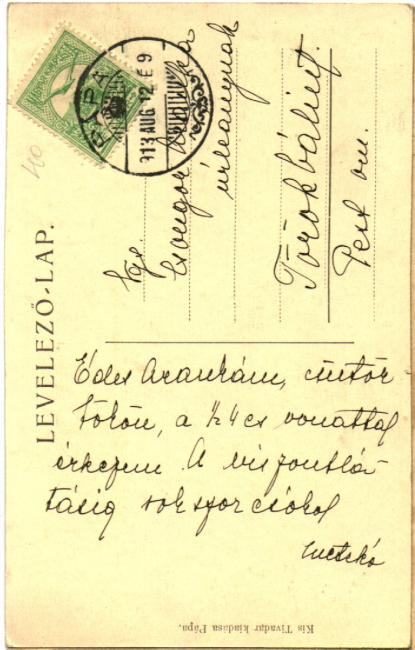 LEVELEZŐ-LAP.
PÁPA
913 AUG. 12. É 9
40
Ngs.
Csongor
úrleánynak
Törökbálint.
Pest vm.
Édes Arankám, csütör
tökön, a ½4es vonattal
érkezem. A viszontlá-
tásig sokszor csókol
Kis Tivadar kiadása Pápa.